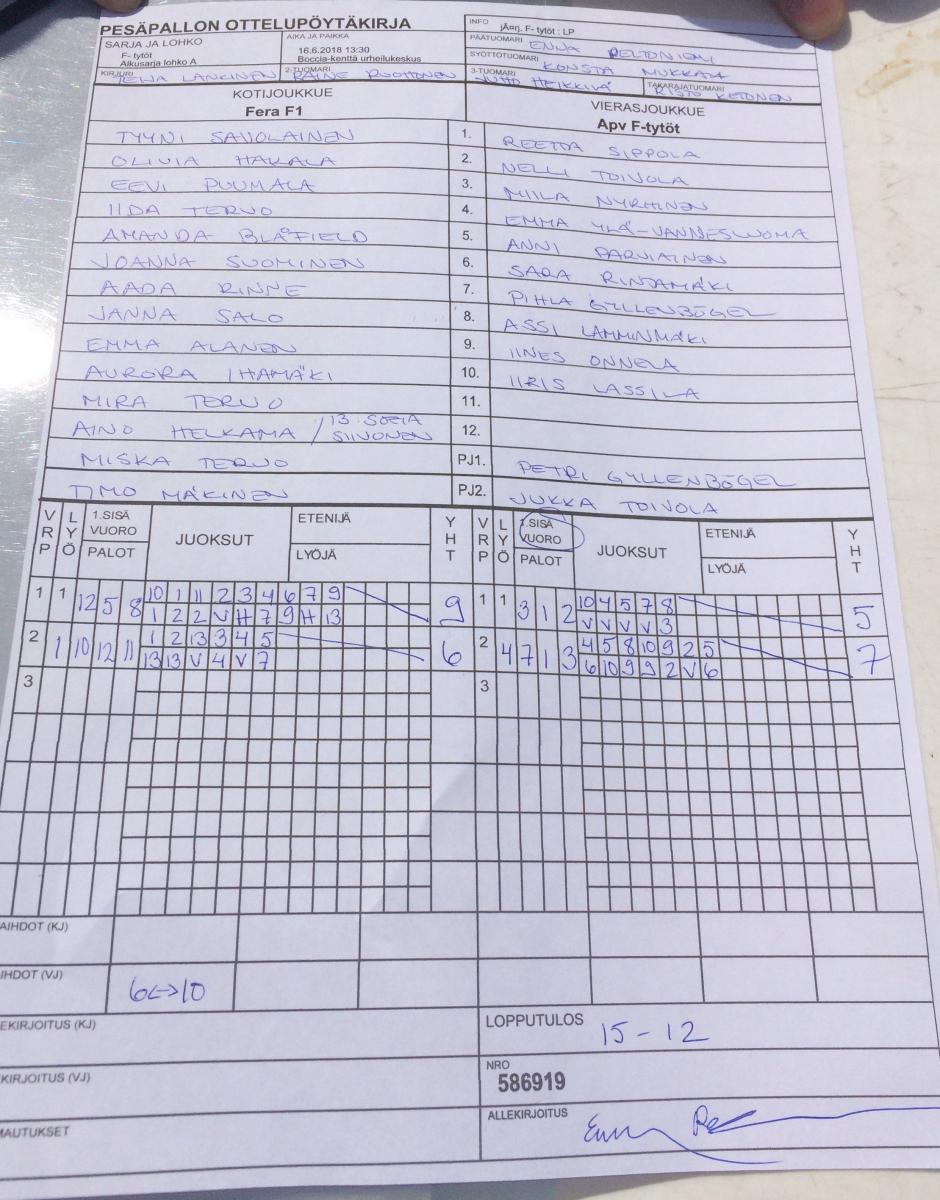 PESÄPALLON OTTELUPÖYTÄKIRJA
INFO jÄärj. F- tytöt : LP
SARJA JA LOHKO
F- tytöt
Alkusarja lohko A
AIKA JA PAIKKA
16.6.2018 13:30
Boccia-kenttä urheilukeskus
PÄÄTUOMARI ENNA PELTONIEMI
SYÖTTÖTUOMARI KONSTA
KIRJURI LANKINEN
2-TUOMARI RAINE RUOHONEN
3-TUOMARI JUHO HEIKKILÄ
TAKARAJATUOMARI RISTO KETONEN
KOTIJOUKKUE
Fera F1
VIERASJOUKKUE
Apv F-tytöt
TYYNI SAVOLAINEN 1. REETTA SIPPOLA
OLIVIA HAKALA 2. NELLI TOIVOLA
EEVI PUUMALA 3. MIILA NYRHINEN
IIDA TERVO 4. EMMA YLÄ-VANNESLUOMA
AMANDA BLÅFIELD 5. ANNI PARVIAINEN
JOANNA SUOMINEN 6. SARA RINTAMÄKI
AADA RINNE 7. PIHLA GYLLENBÖGEL
JANNA SALO 8. ASSI LAMMINMÄKI
EMMA ALANEN 9. IINES ONNELA
AURORA IHAMÄKI 10. IIRIS LASSILA
MIRA TERVO 11.
AINO HELKAMA / 13. SOFIA SIIVONEN 12.
MISKA TERVO PJ1. PETRI GYLLENBÖGEL
TIMO MÄKINEN PJ2. JUKKA TOIVOLA
VRP LYÖ 1.SISÄ VUORO PALOT JUOKSUT ETENIJÄ LYÖJÄ YHT
VRP LYÖ 1.SISÄ VUORO PALOT JUOKSUT ETENIJÄ LYÖJÄ YHT
1 1 12 5 8 10 1 11 2 3 4 6 7 9 9
1 2 2 V H 7 9 H 13
1 1 3 1 2 10 4 5 7 8 5
V V V V 3
2 1 10 12 11 1 2 13 3 4 5 6
13 13 V 4 V 7
2 4 7 1 3 4 5 8 10 9 2 5 7
6 10 9 9 2 V 6
3 3
AIHDOT (KJ)
IHDOT (VJ) 6<->10
EKIRJOITUS (KJ)
LOPPUTULOS 15-12
KIRJOITUS (VJ)
NRO
586919
MAUTUKSET
ALLEKIRJOITUS